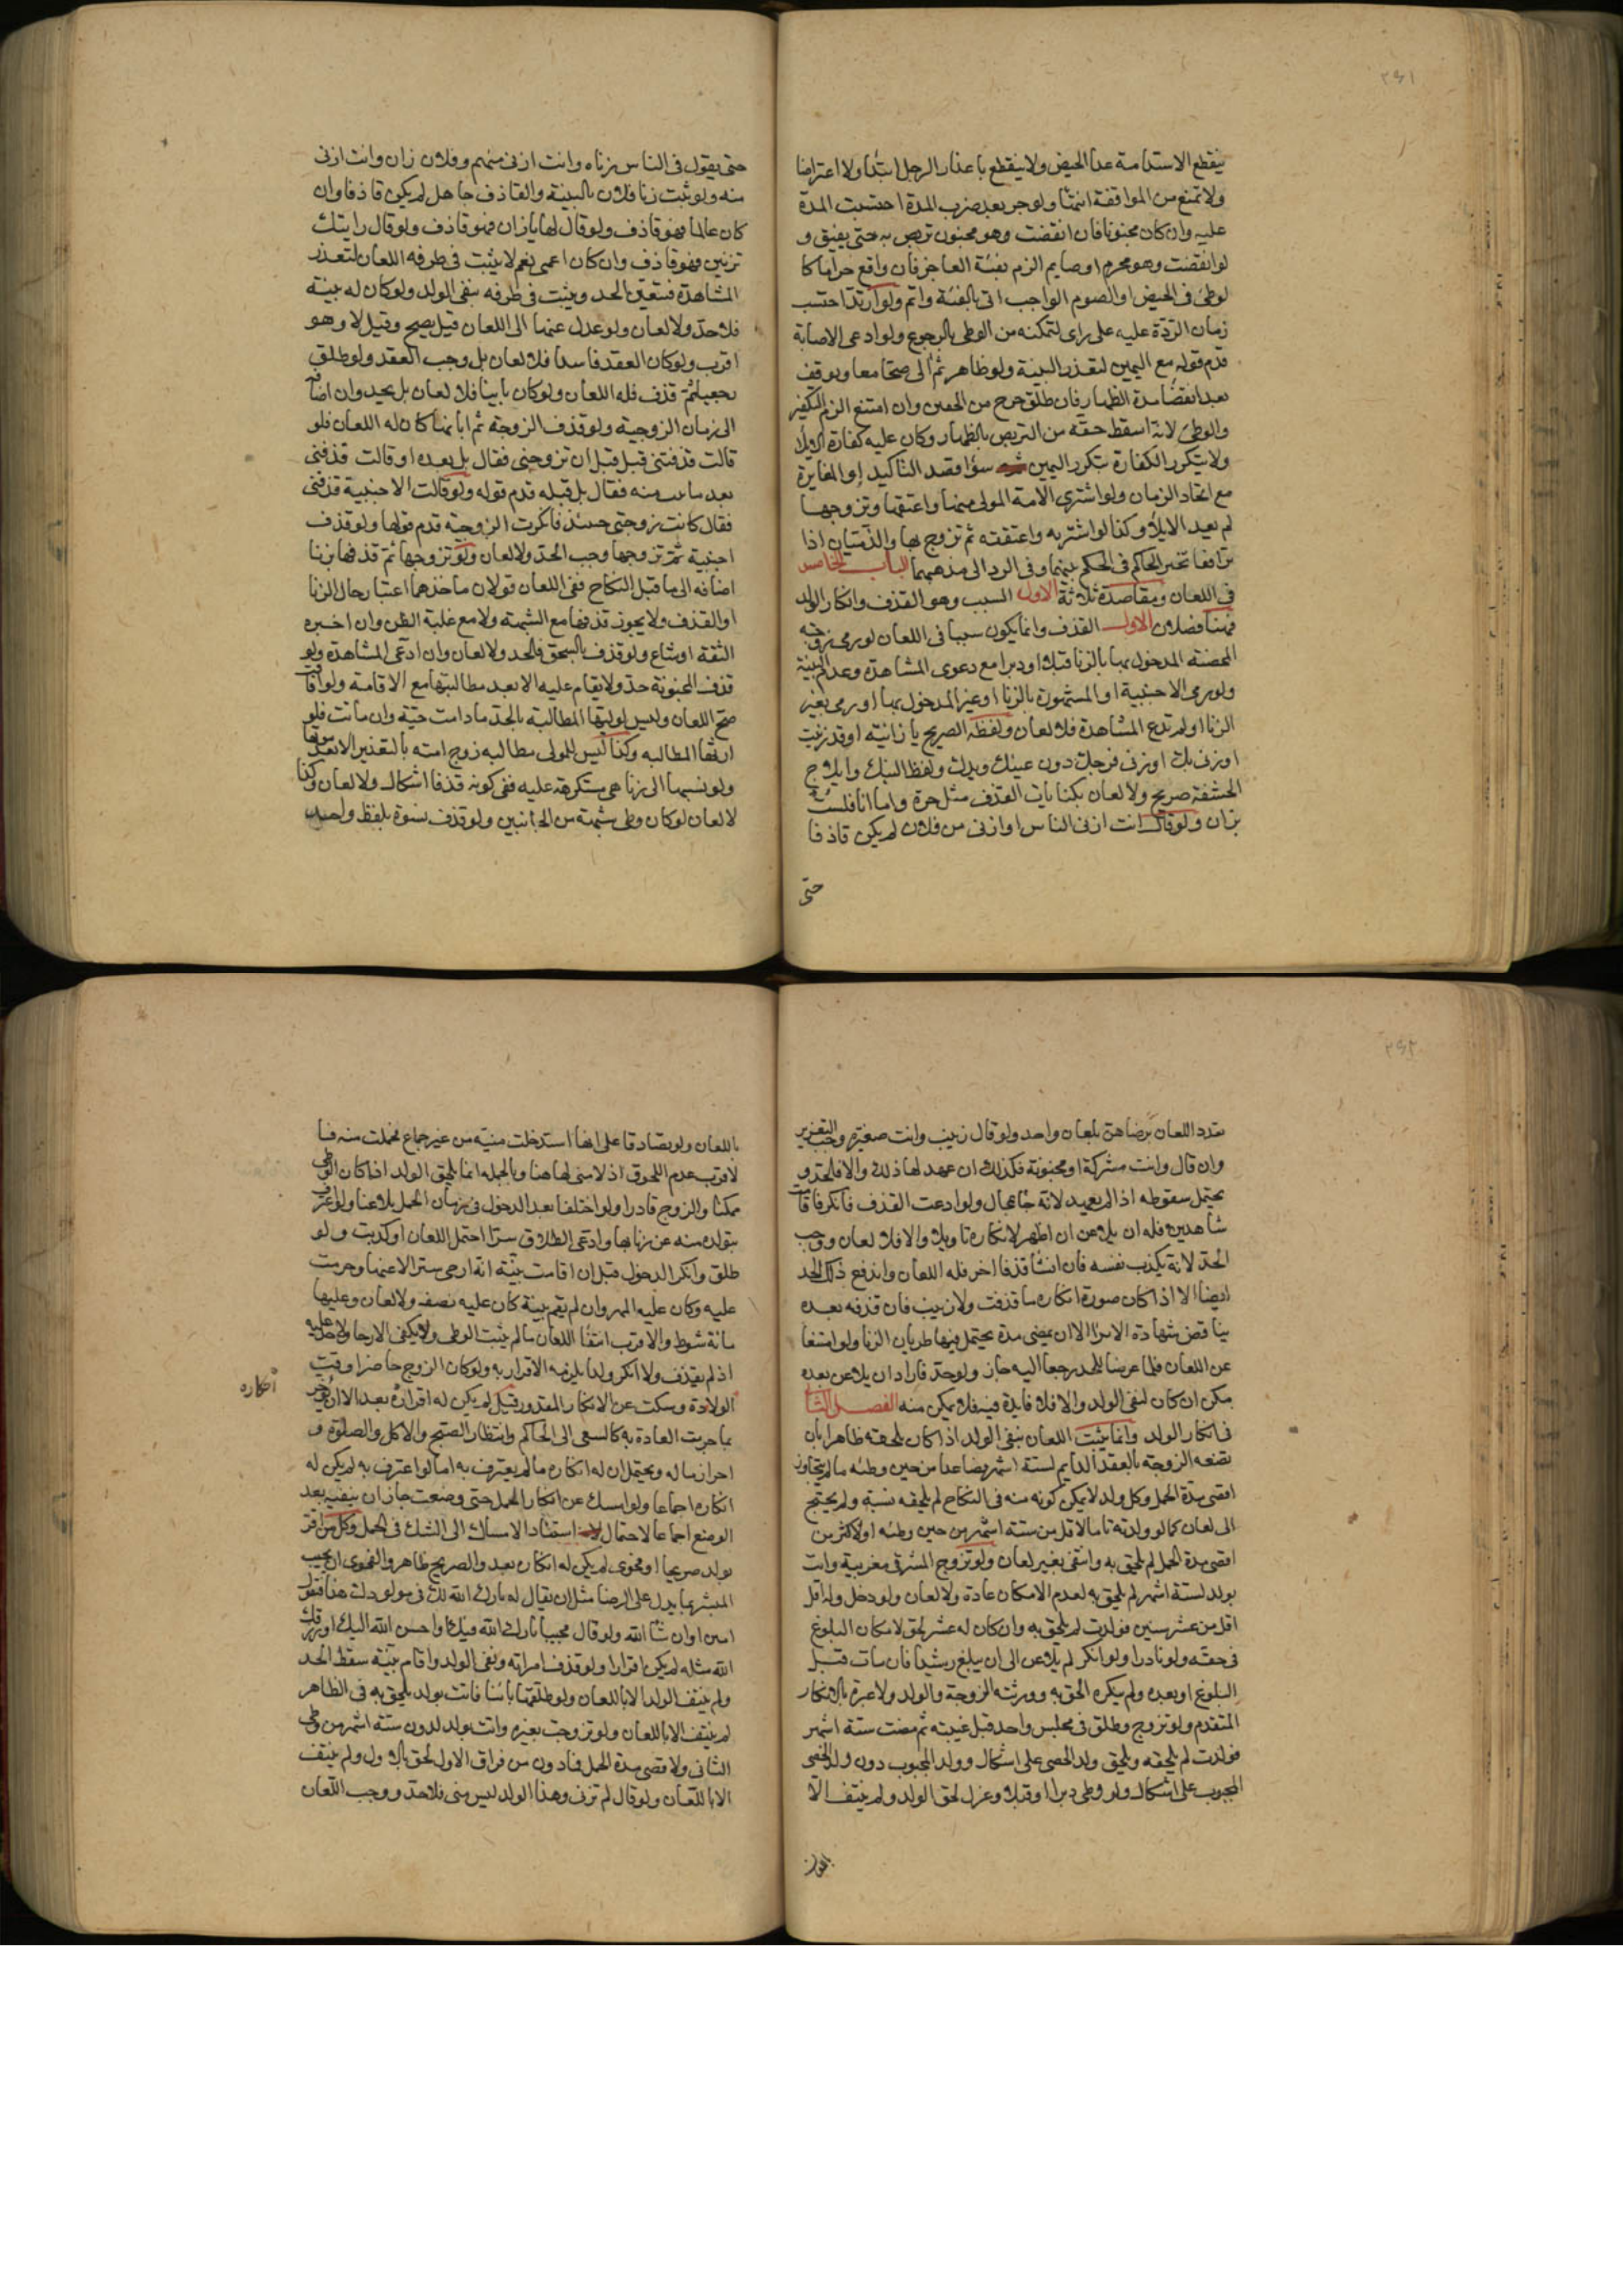 ٢٤١
ينقطع الاستدامة عدا الحيض ولا ينقطع باعذار الرجل ابتدا ولا اعتراضا
ولا تمنع من المواقفة انتها ولو جن بعد ضرب المدة احتسبت المدة
عليه وان كان مجنونا فان انقضت وهو مجنون تربص به حتى يفيق و
لو انقضت وهو محرم او صايم الزم بفئة العاجز فان واقع حراما كا
لوطئ في الحيض او الصوم الواجب اتى بالفئة واثم ولو ارتد احتسب
زمان الردة عليه على راى لتمكنه من الوطى بالرجوع ولو ادعى الاصابة
قدم قوله مع اليمين لتعذر البينة ولو ظاهر ثم آلى صحا معا ويوقف
بعد انقضا مدة الظهار فان طلق خرج من الحقين وان امتنع الزم التكفير
والوطئ لانه اسقط حقه من التربص بالظهار وكان عليه كفارة الايلا
ولا يتكرر الكفارة بتكرر اليمين سوا قصد التاكيد او المغايرة
مع اتحاد الزمان ولو اشترى الامة المولى منها واعتقها وتزوجها
لم يعد الايلا وكذا لو اشترته واعتقته ثم تزوج بها والذميان اذا
ترافعا تخير الحاكم في الحكم بينهما وفي الرد الى مذهبهما الباب الخامس
في اللعان ومقاصده ثلاثة الاول السبب وهو القذف وانكار الولد
فهنا فصلان الاول القذف وانما يكون سببا في اللعان لو رمى زوجته
المحصنة المدخول بها بالزنا قبلا او دبرا مع دعوى المشاهدة وعدم البينة
ولو رمى الاجنبية او المشهورة بالزنا او غير المدخول بها او رمى بغير
الزنا او لم تدع المشاهدة فلا لعان ولفظه الصريح يا زانية او قد زنيت
او زنى بك او زنى فرجك دون عينك ويدك ولفظ النيك وايلاج
الحشفة صريح ولا لعان بكنايات القذف مثل حرة واما انا فلست
بزان ولو قال انت ازنى الناس او ازنى من فلان لم يكن قاذفا
حتى
حتى يقول في الناس زناه وانت ازنى منهم وفلان زان وانت ازنى
منه ولو ثبت زنا فلان بالبينة والقاذف جاهل لم يكن قاذفا وان
كان عالما فهو قاذف ولو قال لها يا زان فهو قاذف ولو قال رايتك
تزنين فهو قاذف وان كان اعمى نعم لا يثبت في طرفه اللعان لتعذر
المشاهدة فيتعين الحد ويثبت في طرفه بنفى الولد ولو كان له بينة
فلا حد ولا لعان ولو عدل عنها الى اللعان قيل يصح وقيل لا وهو
اقرب ولو كان العقد فاسدا فلا لعان بل وجب العقد ولو طلق
رجعيا ثم قذف فله اللعان ولو كان باينا فلا لعان بل يحد وان اضافه
الى زمان الزوجية ولو قذف الزوجة ثم ابانها كان له اللعان فلو
قالت قذفتنى قبل قبل ان تزوجنى فقال بل بعده او قالت قذفنى
بعد ما بنت منه فقال بل قبله قدم قوله ولو قالت الاجنبية قذفنى
فقال كانت زوجتى حينئذ فانكرت الزوجية قدم قولها ولو قذف
اجنبية ثم تزوجها وجب الحد ولا لعان ولو تزوجها ثم قذفها بزنا
اضافه الى ما قبل النكاح ففى اللعان قولان ماخذهما اعتبار حال الزنا
او القذف ولا يجوز قذفها مع الشبهة ولا مع غلبة الظن وان اخبره
الثقة او شاع ولو قذف بالسحق فالحد ولا لعان وان ادعى المشاهدة ولو
قذف المجنونة حد ولا يقام عليه الا بعد مطالبتها مع الافاقة ولو افاقت
صح اللعان وليس لوليها المطالبة بالحد ما دامت حية وان ماتت فلو
ارثها المطالبه وكذا ليس للمولى مطالبه زوج امته بالتعزير الا بعد موتها
ولو نسبها الى زنا هى مستكرهة عليه ففى كونه قذفا اشكال ولا لعان وكذا
لا لعان لو كان وطى شبهة من الجانبين ولو قذف نسوة بلفظ واحد
٢٤٢
تعدد اللعان برضاهن بلعان واحد ولو قال زنيت وانت صغيرة وجب التعزير
وان قال وانت مشركة او مجنونة فكذلك ان عهد لها ذلك والا فالحد و
يحتمل سقوطه اذا لم يعهد لانه جا بمحال ولو ادعت القذف فانكر فاقامت
شاهدين فله ان يلاعن ان اظهر لانكاره تاويلا والا فلا لعان ووجب
الحد لانه يكذب نفسه فان انشا قذفا اخر فله اللعان واندفع ذلك الحد
ايضا الا اذا كان صورة انكاره ما قذفت ولا زنيت فان قذفه بعده
يناقض شهادة الابراء الا ان يمضى مدة يحتمل فيها طريان الزنا ولو امتنعا
عن اللعان فلما عرضا للحد رجعا اليه جاز ولو حد فاراد ان يلاعن بعده
مكن ان كان لنفى الولد والا فلا فايدة فيه فلا يمكن منه الفصل الثانى
في انكار الولد وانما يثبت اللعان بنفى الولد اذا كان يلحقه ظاهرا بان
تضعه الزوجة بالعقد الدايم لستة اشهر فصاعدا من حين وطئه ما لم يتجاوز
اقصى مدة الحمل وكل ولد لا يمكن كونه منه في النكاح لم يلحقه نسبه ولم يحتج
الى لعان كما لو ولدته تاما لاقل من ستة اشهر من حين وطئه او لاكثر من
اقصى مدة الحمل لم يلحق به وانتفى بغير لعان ولو تزوج المشرقى مغربية واتت
بولد لستة اشهر لم يلحق به لعدم الامكان عادة ولا لعان ولو دخل وله اقل
اقل من عشر سنين فولدت لم يلحق به وان كان له عشر لحق لامكان البلوغ
في حقه ولو نادرا ولو انكر لم يلاعن الى ان يبلغ رشيدا فان مات قبل
البلوغ او بعده ولم ينكره الحق به وورثته الزوجة والولد ولا عبرة بالانكار
المتقدم ولو تزوج وطلق في مجلس واحد قبل غيبته ثم مضت ستة اشهر
فولدت لم يلحقه ويلحق ولد الخصى على اشكال وولد المجبوب دون ولد الخصى
المجبوب على اشكال ولو وطى دبرا او قبلا وعزل لحق الولد ولم ينتف الا
باللعان
باللعان ولو تصادقا على انها استدخلت منيه من غير جماع فحملت منه فا
لاقرب عدم اللحوق اذ لا منى لها هنا وبالجمله انما يلحق الولد اذا كان الوطى
ممكنا والزوج قادرا ولو اختلفا بعد الدخول في زمان الحمل تلاعنا ولو اعترف
بتولده منه عن زنا بها وادعى الطلاق سرا احتمل اللعان او كذبت ولو
طلق وانكر الدخول قبل ان اقامت بينة انه ارخى سترا لاعنها وحرمت
عليه وكان عليه المهر وان لم يقم بينة كان عليه نصفه ولا لعان وعليها
مائة سوط والاقرب انتفا اللعان ما لم يثبت الوطى ولا يكفى الارخا ولا حد عليه
اذ لم يقذف ولا انكر ولدا يلزمه الاقرار به ولو كان الزوج حاضرا وقت
الولادة وسكت عن الانكار المقدور قيل لم يكن له انكاره بعد الا ان يؤخر
انكاره
بما جرت العادة به كالسعى الى الحاكم وانتظار الصبح والاكل والصلوة و
احراز ماله ويحتمل ان له انكاره ما لم يعترف به اما لو اعترف به لم يكن له
انكاره اجماعا ولو امسك عن انكار الحمل حتى وضعت جاز ان ينفيه بعد
الوضع اجماعا لاحتمال استناد الامساك الى الشك في الحمل وكل من اقر
بولد صريحا او فحوى لم يكن له انكاره بعد والصريح ظاهر والفحوى ان يجيب
المبشر بما يدل على الرضا مثل ان يقال له بارك الله لك في مولودك هذا فيقول
امين او ان شا الله ولو قال مجيبا بارك الله فيك او احسن الله اليك او رزقك
الله مثله لم يكن اقرارا ولو قذف امراته ونفى الولد واقام بينة سقط الحد
ولم ينتف الولد الا باللعان ولو طلقها باينا فاتت بولد يلحق به في الظاهر
لم ينتف الا باللعان ولو تزوجت بغيره واتت بولد لدون ستة اشهر من وطى
الثانى ولاقصى مدة الحمل فما دون من فراق الاول لحق بالاول ولم ينتف
الا باللعان ولو قال لم تزن وهذا الولد ليس منى فلا حد ووجب اللعان